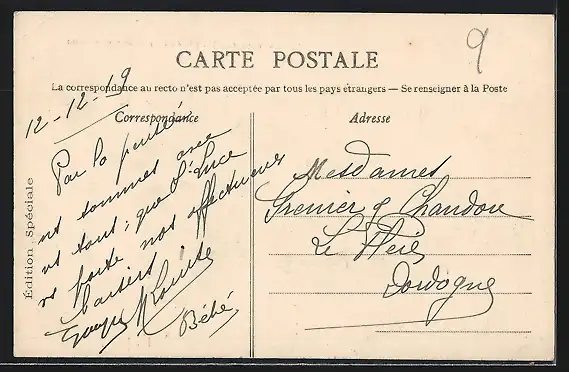 9
CARTE POSTALE
La correspondance au recto n'est pas acceptée par tous les pays étrangers — Se renseigner à la Poste
Correspondance
Adresse
Édition Spéciale
12-12-19
Par la pensée
ns sommes avec
vs tous, que St Luce
vs porte nos affectueux
baisers
Georges Louise
Bébé
Mesdames
Grenier & Chandou
Le
Dordogne